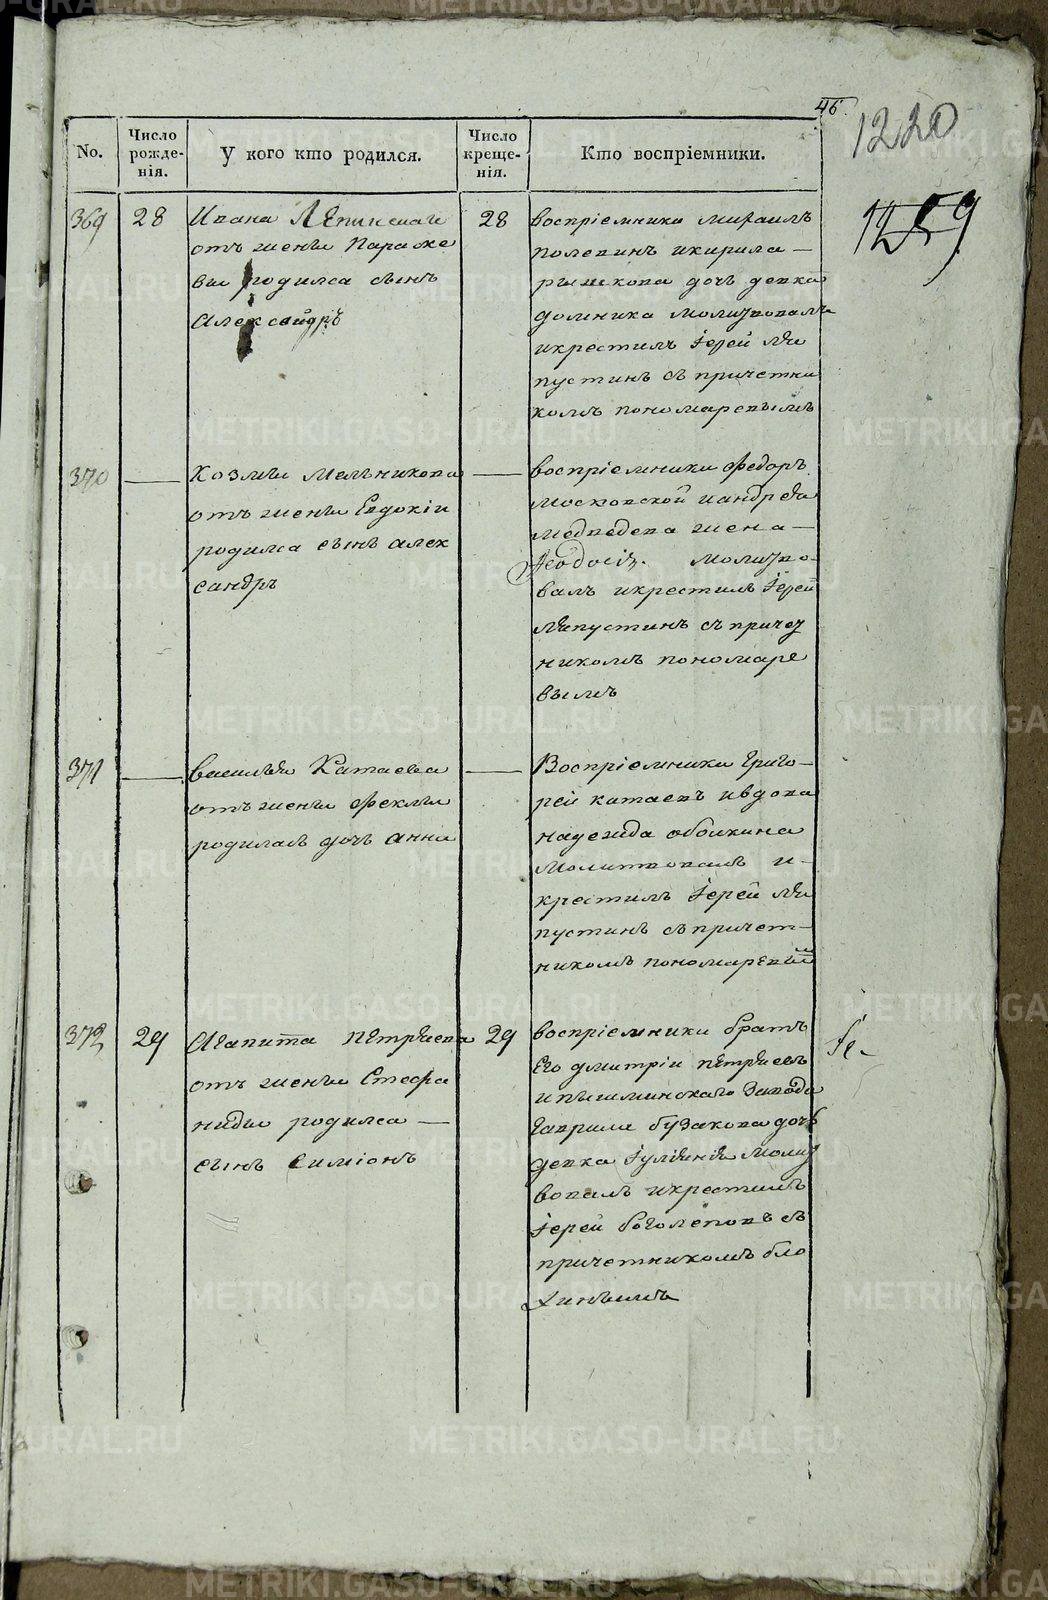 46.
1220
1259
No.
Число рожденія.
У кого кто родился.
Число крещенія.
Кто воспріемники.
369
28
Ивана
отъ жены Параске
вы родился сынъ
Александръ
28
воспріемники михаилъ
полевинъ икирила
дочь девка
домника молитвовалъ
икрестилъ іерей ля
пустинъ съ причетни
комъ пономаревымъ
370
Козмы Мельникова
отъ жены Евдокіи
родился сынъ алек
сандръ
воспріемники Федоръ
московской иандрея
медведева жена
Феодосія. молитво
валъ икрестилъ іерей
ляпустинъ съ причет
никомъ пономаре
вымъ
371
василья Катаева
отъ жены Феклы
родилась дочь анна
Воспріемники григо
рей катаевъ ивдова
надежда обоикина
молитвовалъ и
крестилъ іерей ля
пустинъ съ причет
никомъ пономаревым
372
29
Агапита Петряева
отъ жены Стефа
ниды родился
сынъ симіонъ
29
воспріемники братъ
его дмитріи петряевъ
ипышминскаго завода
гаврилы бузакова дочь
девка іуліянія молит
вовалъ икрестилъ
іерей боголеповъ съ
причетникомъ бло
хинымъ
METRIKI.GASO-URAL.RU